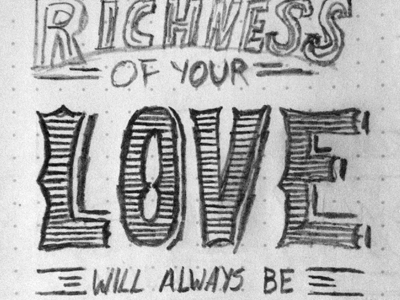 RICHNESS
OF YOUR
LOVE
WILL ALWAYS BE